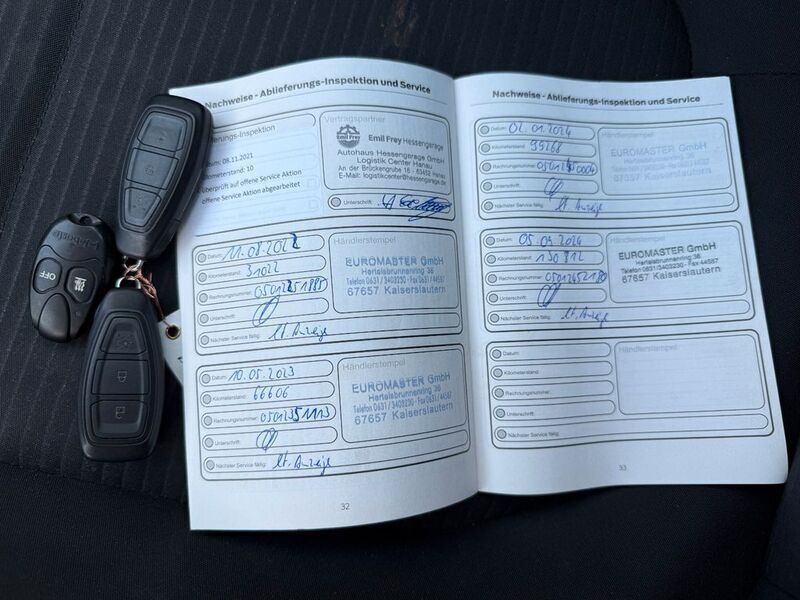 Nachweise - Ablieferungs-Inspektion und Service
erungs-Inspektion
um: 08.11.2021
ometerstand: 10
überprüft auf offene Service Aktion
offene Service Aktion abgearbeitet
Vertragspartner
Emil Frey
Emil Frey Hessengarage
Autohaus Hessengarage GmbH
Logistik Center Hanau
An der Brückengrube 16 - 63452 Hanau
E-Mail: logistikcenter@hessengarage.de
Unterschrift:
Datum: 11.08.2022
Kilometerstand: 31022
Rechnungsnummer:
Unterschrift:
Nächster Service fällig: lt. Anzeige
Händlerstempel
EUROMASTER GmbH
Hertelsbrunnenring 36
Telefon 0631/3403230 - Fax 44587
67657 Kaiserslautern
Datum: 10.05.2023
Kilometerstand: 66606
Rechnungsnummer:
Unterschrift:
Nächster Service fällig: lt. Anzeige
Händlerstempel
EUROMASTER GmbH
Hertelsbrunnenring 36
Telefon 0631/3403230 - Fax 0631/44587
67657 Kaiserslautern
32
Nachweise - Ablieferungs-Inspektion und Service
Datum: 02.01.2024
Kilometerstand: 99268
Rechnungsnummer:
Unterschrift:
Nächster Service fällig: lt. Anzeige
Händlerstempel
EUROMASTER GmbH
Hertelsbrunnenring 36
67657 Kaiserslautern
Datum: 05.09.2024
Kilometerstand: 130812
Rechnungsnummer:
Unterschrift:
Nächster Service fällig: lt. Anzeige
Händlerstempel
EUROMASTER GmbH
Hertelsbrunnenring 36
Telefon 0631/3403230 - Fax 44587
67657 Kaiserslautern
Datum:
Kilometerstand:
Rechnungsnummer:
Unterschrift:
Nächster Service fällig:
Händlerstempel
33
Webasto
OFF